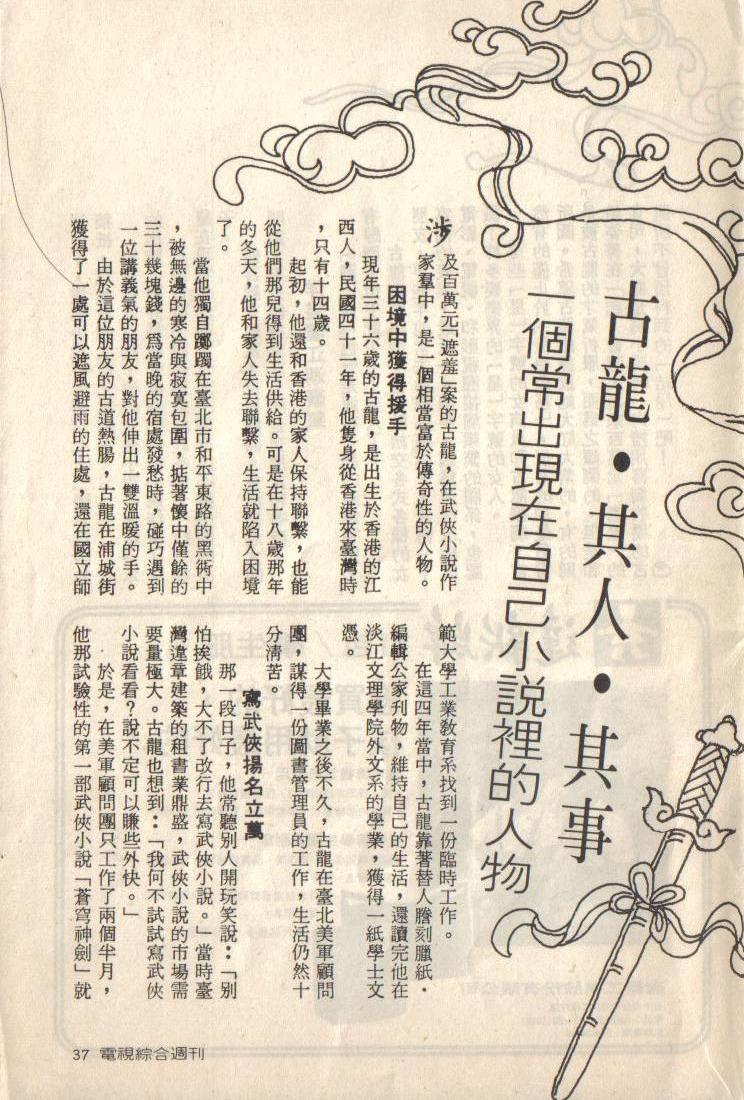 古龍・其人・其事
一個常出現在自己小說裡的人物
涉及百萬元「遮羞」案的古龍，在武俠小說作
家羣中，是一個相當富於傳奇性的人物。
困境中獲得援手
現年三十六歲的古龍，是出生於香港的江
西人，民國四十一年，他隻身從香港來臺灣時
，只有十四歲。
起初，他還和香港的家人保持聯繫，也能
從他們那兒得到生活供給。可是在十八歲那年
的冬天，他和家人失去聯繫，生活就陷入困境
了。
當他獨自躑躅在臺北市和平東路的黑術中
，被無邊的寒冷與寂寞包圍，掂著懷中僅餘的
三十幾塊錢，爲當晚的宿處發愁時，碰巧遇到
一位講義氣的朋友，對他伸出一雙溫暖的手。
由於這位朋友的古道熱腸，古龍在浦城街
獲得了一處可以遮風避雨的住處，還在國立師
範大學工業教育系找到一份臨時工作。
在這四年當中，古龍靠著替人謄刻臘紙．
編輯公家刋物，維持自己的生活，還讀完他在
淡江文理學院外文系的學業，獲得一紙學士文
憑。
大學畢業之後不久，古龍在臺北美軍顧問
團，謀得一份圖書管理員的工作，生活仍然十
分清苦。
寫武俠揚名立萬
那一段日子，他常聽別人開玩笑說：「別
怕挨餓，大不了改行去寫武俠小說。」當時臺
灣違章建築的租書業鼎盛，武俠小說的市場需
要量極大。古龍也想到：「我何不試試寫武俠
小說看看？說不定可以賺些外快。」
於是，在美軍顧問團只工作了兩個半月，
他那試驗性的第一部武俠小說「蒼穹神劍」就
37 電視綜合週刊